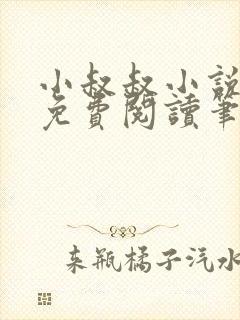 小叔叔小說
免費閱讀筆
来瓶橘子汽水